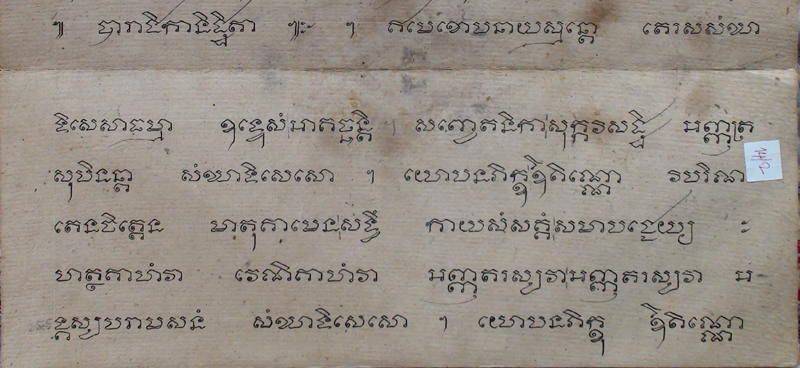 ៕ បារាជិកានិដ្ឋិតា ៕ះ ៗ ឥមេខោបនាយស្មន្តោ តេរសសំឃា
ទិសេសាធម្មា ឧទ្ទេសំអាគច្ឆន្តិ សញ្ចេតនិកាសុក្កវិសដ្ឋិ អញ្ញត្រ
សុបិនន្តា សំឃាទិសេសោ ៗ យោបនភិក្ខុឱតិណ្ណោ វិបរិណ
តេនចិត្តេន មាតុគាមេនសទ្ធឹ កាយសំសគ្គំសមាបជ្ជេយ្យ ះ
ហត្ថគាហំវា វេណិគាហំវា អញ្ញតរស្សវាអញ្ញតរស្សវា អ
ង្គស្សបរាមសនំ សំឃាទិសេសោ ៗ យោបនភិក្ខុ ឱតិណ្ណោ